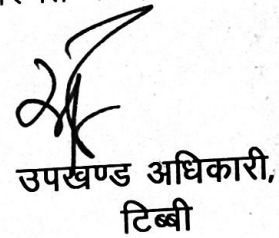 उपखण्ड अधिकारी,
टिब्बी